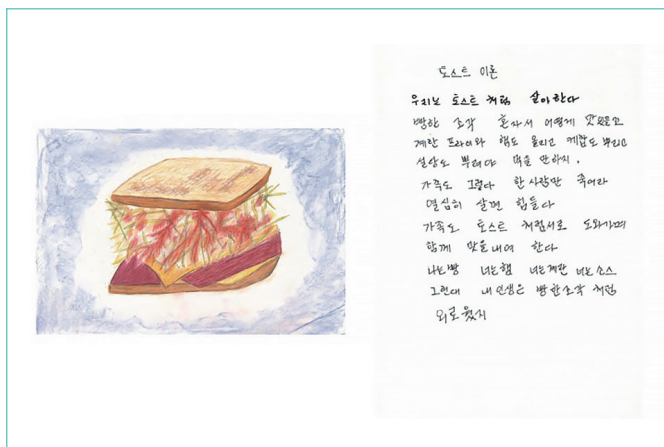 토스트 이론
우리는 토스트 처럼 살아한다
빵한 조각 혼자서 어떻게 맛있을고
계란 프라이와 햄도 올리고 케찹도 뿌리고
설탕도 뿌려야 먹을 만하지.
가족도 그렇다 한사람만 죽어라
열심히 살면 힘들다
가족도 토스트 처럼서로 도와가며
함께 맛을내여 한다
나는빵 너는햄 너는계란 너는소스
그런대 내인생은 빵한조각 처럼
외로웠지